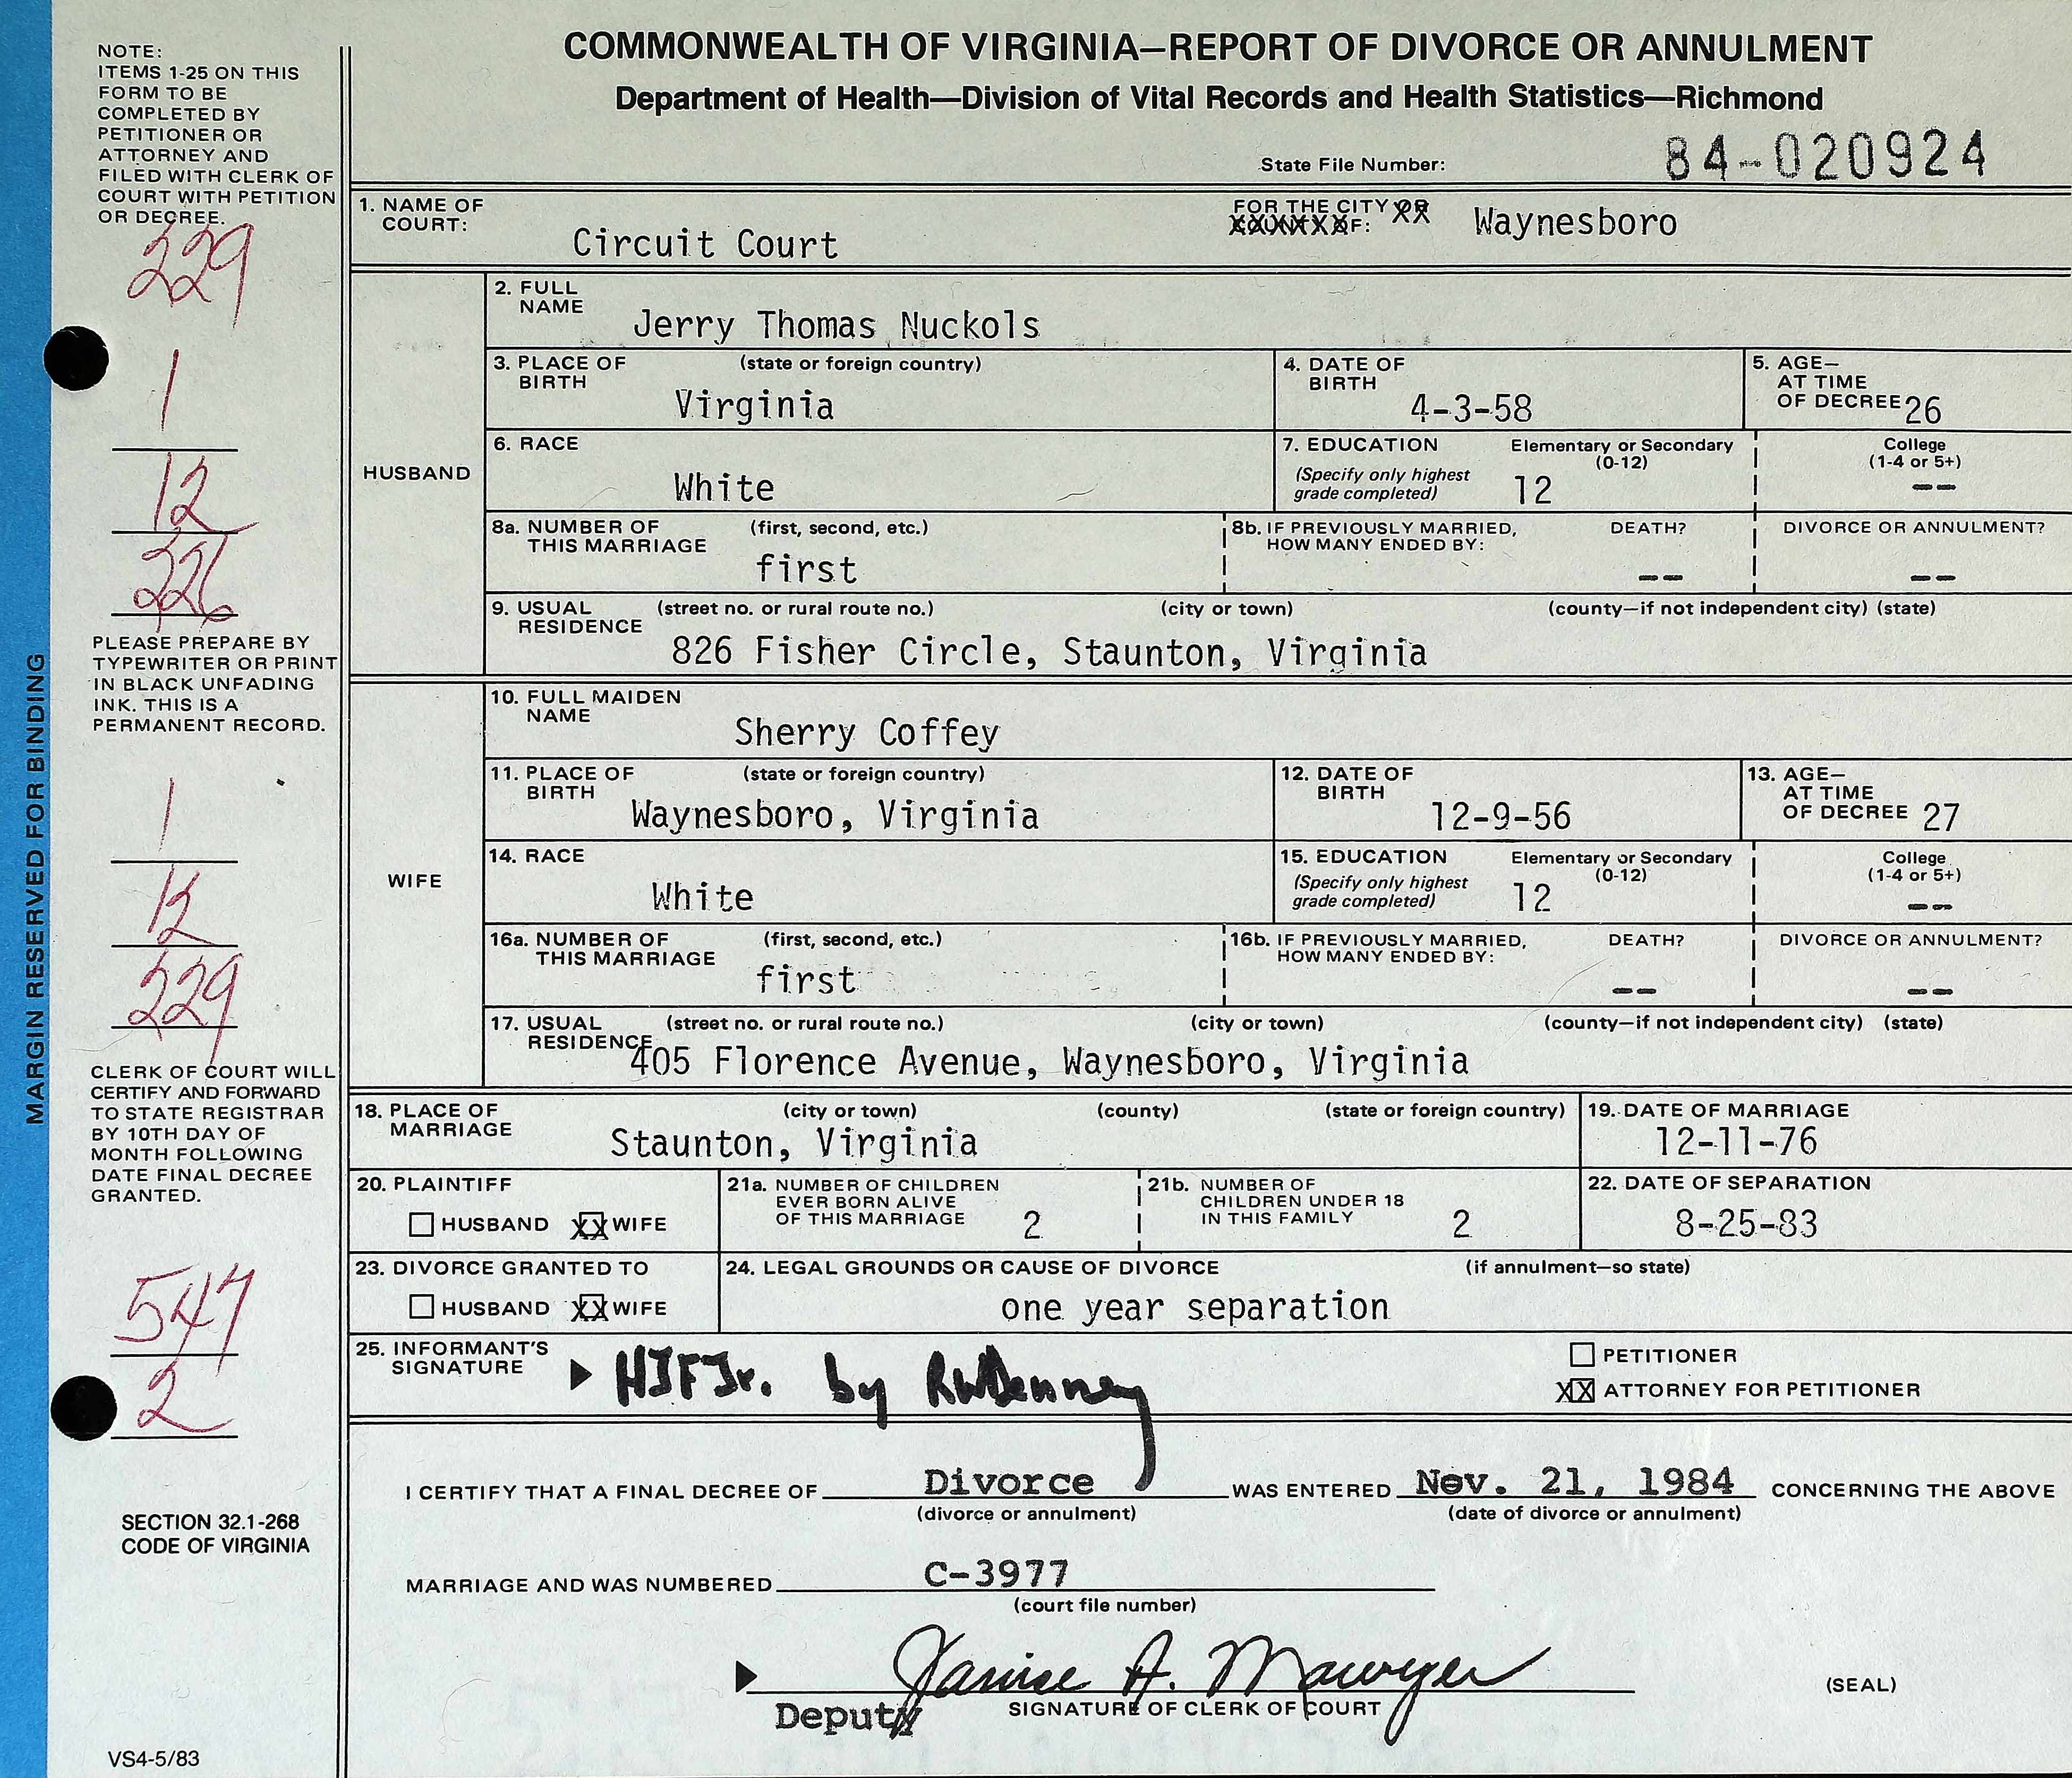 COMMONWEALTH OF VIRGINIA—REPORT OF DIVORCE OR ANNULMENT
Department of Health—Division of Vital Records and Health Statistics—Richmond
State File Number: 84-020924
NOTE:
ITEMS 1-25 ON THIS
FORM TO BE
COMPLETED BY
PETITIONER OR
ATTORNEY AND
FILED WITH CLERK OF
COURT WITH PETITION
OR DECREE.
229
1
12
226
PLEASE PREPARE BY
TYPEWRITER OR PRINT
IN BLACK UNFADING
INK. THIS IS A
PERMANENT RECORD.
1
12
229
CLERK OF COURT WILL
CERTIFY AND FORWARD
TO STATE REGISTRAR
BY 10TH DAY OF
MONTH FOLLOWING
DATE FINAL DECREE
GRANTED.
547
2
SECTION 32.1-268
CODE OF VIRGINIA
VS4-5/83
MARGIN RESERVED FOR BINDING
1. NAME OF
COURT:
Circuit Court
FOR THE CITY OR
COUNTY OF:
Waynesboro
HUSBAND
2. FULL
NAME
Jerry Thomas Nuckols
3. PLACE OF (state or foreign country)
BIRTH
Virginia
4. DATE OF
BIRTH
4-3-58
5. AGE—
AT TIME
OF DECREE 26
6. RACE
White
7. EDUCATION Elementary or Secondary College
(0-12) (1-4 or 5+)
(Specify only highest
grade completed) 12 --
8a. NUMBER OF (first, second, etc.)
THIS MARRIAGE
first
8b. IF PREVIOUSLY MARRIED, DEATH? DIVORCE OR ANNULMENT?
HOW MANY ENDED BY:
-- --
9. USUAL (street no. or rural route no.) (city or town) (county—if not independent city) (state)
RESIDENCE
826 Fisher Circle, Staunton, Virginia
WIFE
10. FULL MAIDEN
NAME
Sherry Coffey
11. PLACE OF (state or foreign country)
BIRTH
Waynesboro, Virginia
12. DATE OF
BIRTH
12-9-56
13. AGE—
AT TIME
OF DECREE 27
14. RACE
White
15. EDUCATION Elementary or Secondary College
(0-12) (1-4 or 5+)
(Specify only highest
grade completed) 12 --
16a. NUMBER OF (first, second, etc.)
THIS MARRIAGE
first
16b. IF PREVIOUSLY MARRIED, DEATH? DIVORCE OR ANNULMENT?
HOW MANY ENDED BY:
-- --
17. USUAL (street no. or rural route no.) (city or town) (county—if not independent city) (state)
RESIDENCE
405 Florence Avenue, Waynesboro, Virginia
18. PLACE OF (city or town) (county) (state or foreign country)
MARRIAGE
Staunton, Virginia
19. DATE OF MARRIAGE
12-11-76
20. PLAINTIFF
HUSBAND XX WIFE
21a. NUMBER OF CHILDREN
EVER BORN ALIVE
OF THIS MARRIAGE 2
21b. NUMBER OF
CHILDREN UNDER 18
IN THIS FAMILY 2
22. DATE OF SEPARATION
8-25-83
23. DIVORCE GRANTED TO
HUSBAND XX WIFE
24. LEGAL GROUNDS OR CAUSE OF DIVORCE (if annulment—so state)
one year separation
25. INFORMANT'S
SIGNATURE
HJFJr. by RWDenney
PETITIONER
XX ATTORNEY FOR PETITIONER
I CERTIFY THAT A FINAL DECREE OF Divorce WAS ENTERED Nov. 21, 1984 CONCERNING THE ABOVE
(divorce or annulment) (date of divorce or annulment)
MARRIAGE AND WAS NUMBERED C-3977
(court file number)
Janise A. Mawyer
Deputy SIGNATURE OF CLERK OF COURT (SEAL)